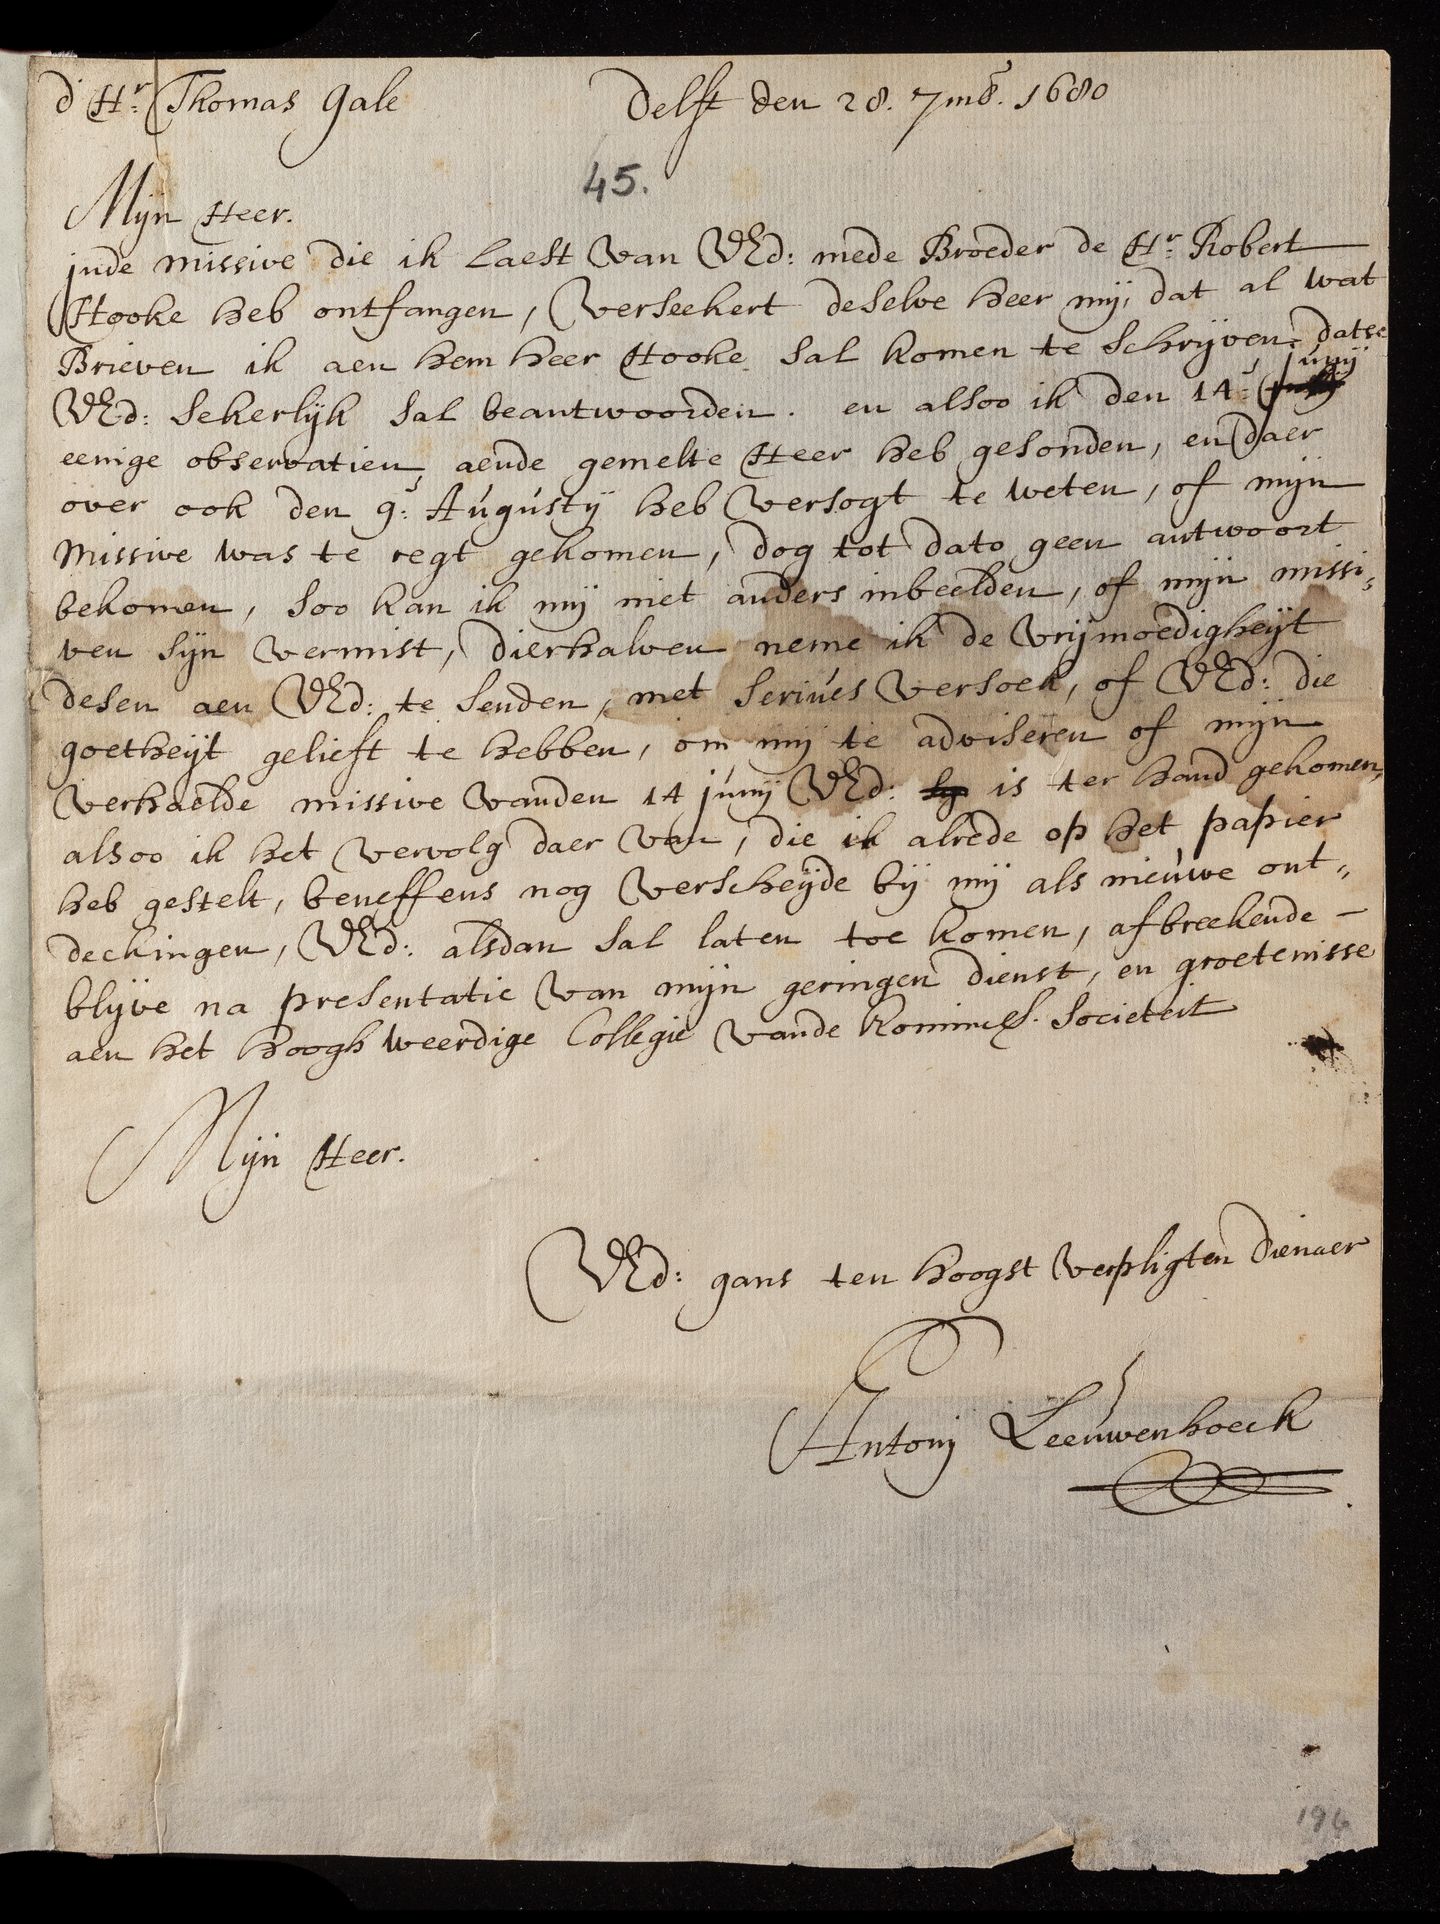 d' Hr. Thomas Gale Delft den 28. 7mb. 1680
45.
Mijn Heer.
jnde missive die ik laest van VEd: mede Broeder de Hr. Robert
Hooke heb ontfangen, verseekert deselve heer mij, dat al wat
Brieven ik aen hem heer Hooke sal komen te schrijven, datse
junij
VEd: sekerlijk sal beantwoorden. en alsoo ik den 14e.
eenige observatien aende gemelte Heer heb gesonden, en daer
over ook den 9e. Augustij heb versogt te weten, of mijn
missive was te regt gekomen, dog tot dato geen antwoort
bekomen, soo kan ik mij niet anders inbeelden, of mijn missi,,
ven sijn vermist, dierhalven neme ik de vrijmoedigheijt
desen aen VEd: te senden, met serieus versoek, of VEd: die
goetheijt gelieft te hebben, om mij te adviseren of mijn
verhaelde missive vanden 14 junij VEd: is ter hand gekomen,
alsoo ik het vervolg daer van, die ik alrede op het papier
heb gestelt, beneffens nog verscheijde bij mij als nieuwe ont,,
deckingen, VEd: alsdan sal laten toe komen, afbreekende -
blijve na presentatie van mijn geringen dienst, en groetenisse
aen het hoogh weerdige Collegie vande Konincl. Societeit
Mijn Heer.
VEd: gans ten hoogst verpligten dienaer
Antonj Leeuwenhoeck
196